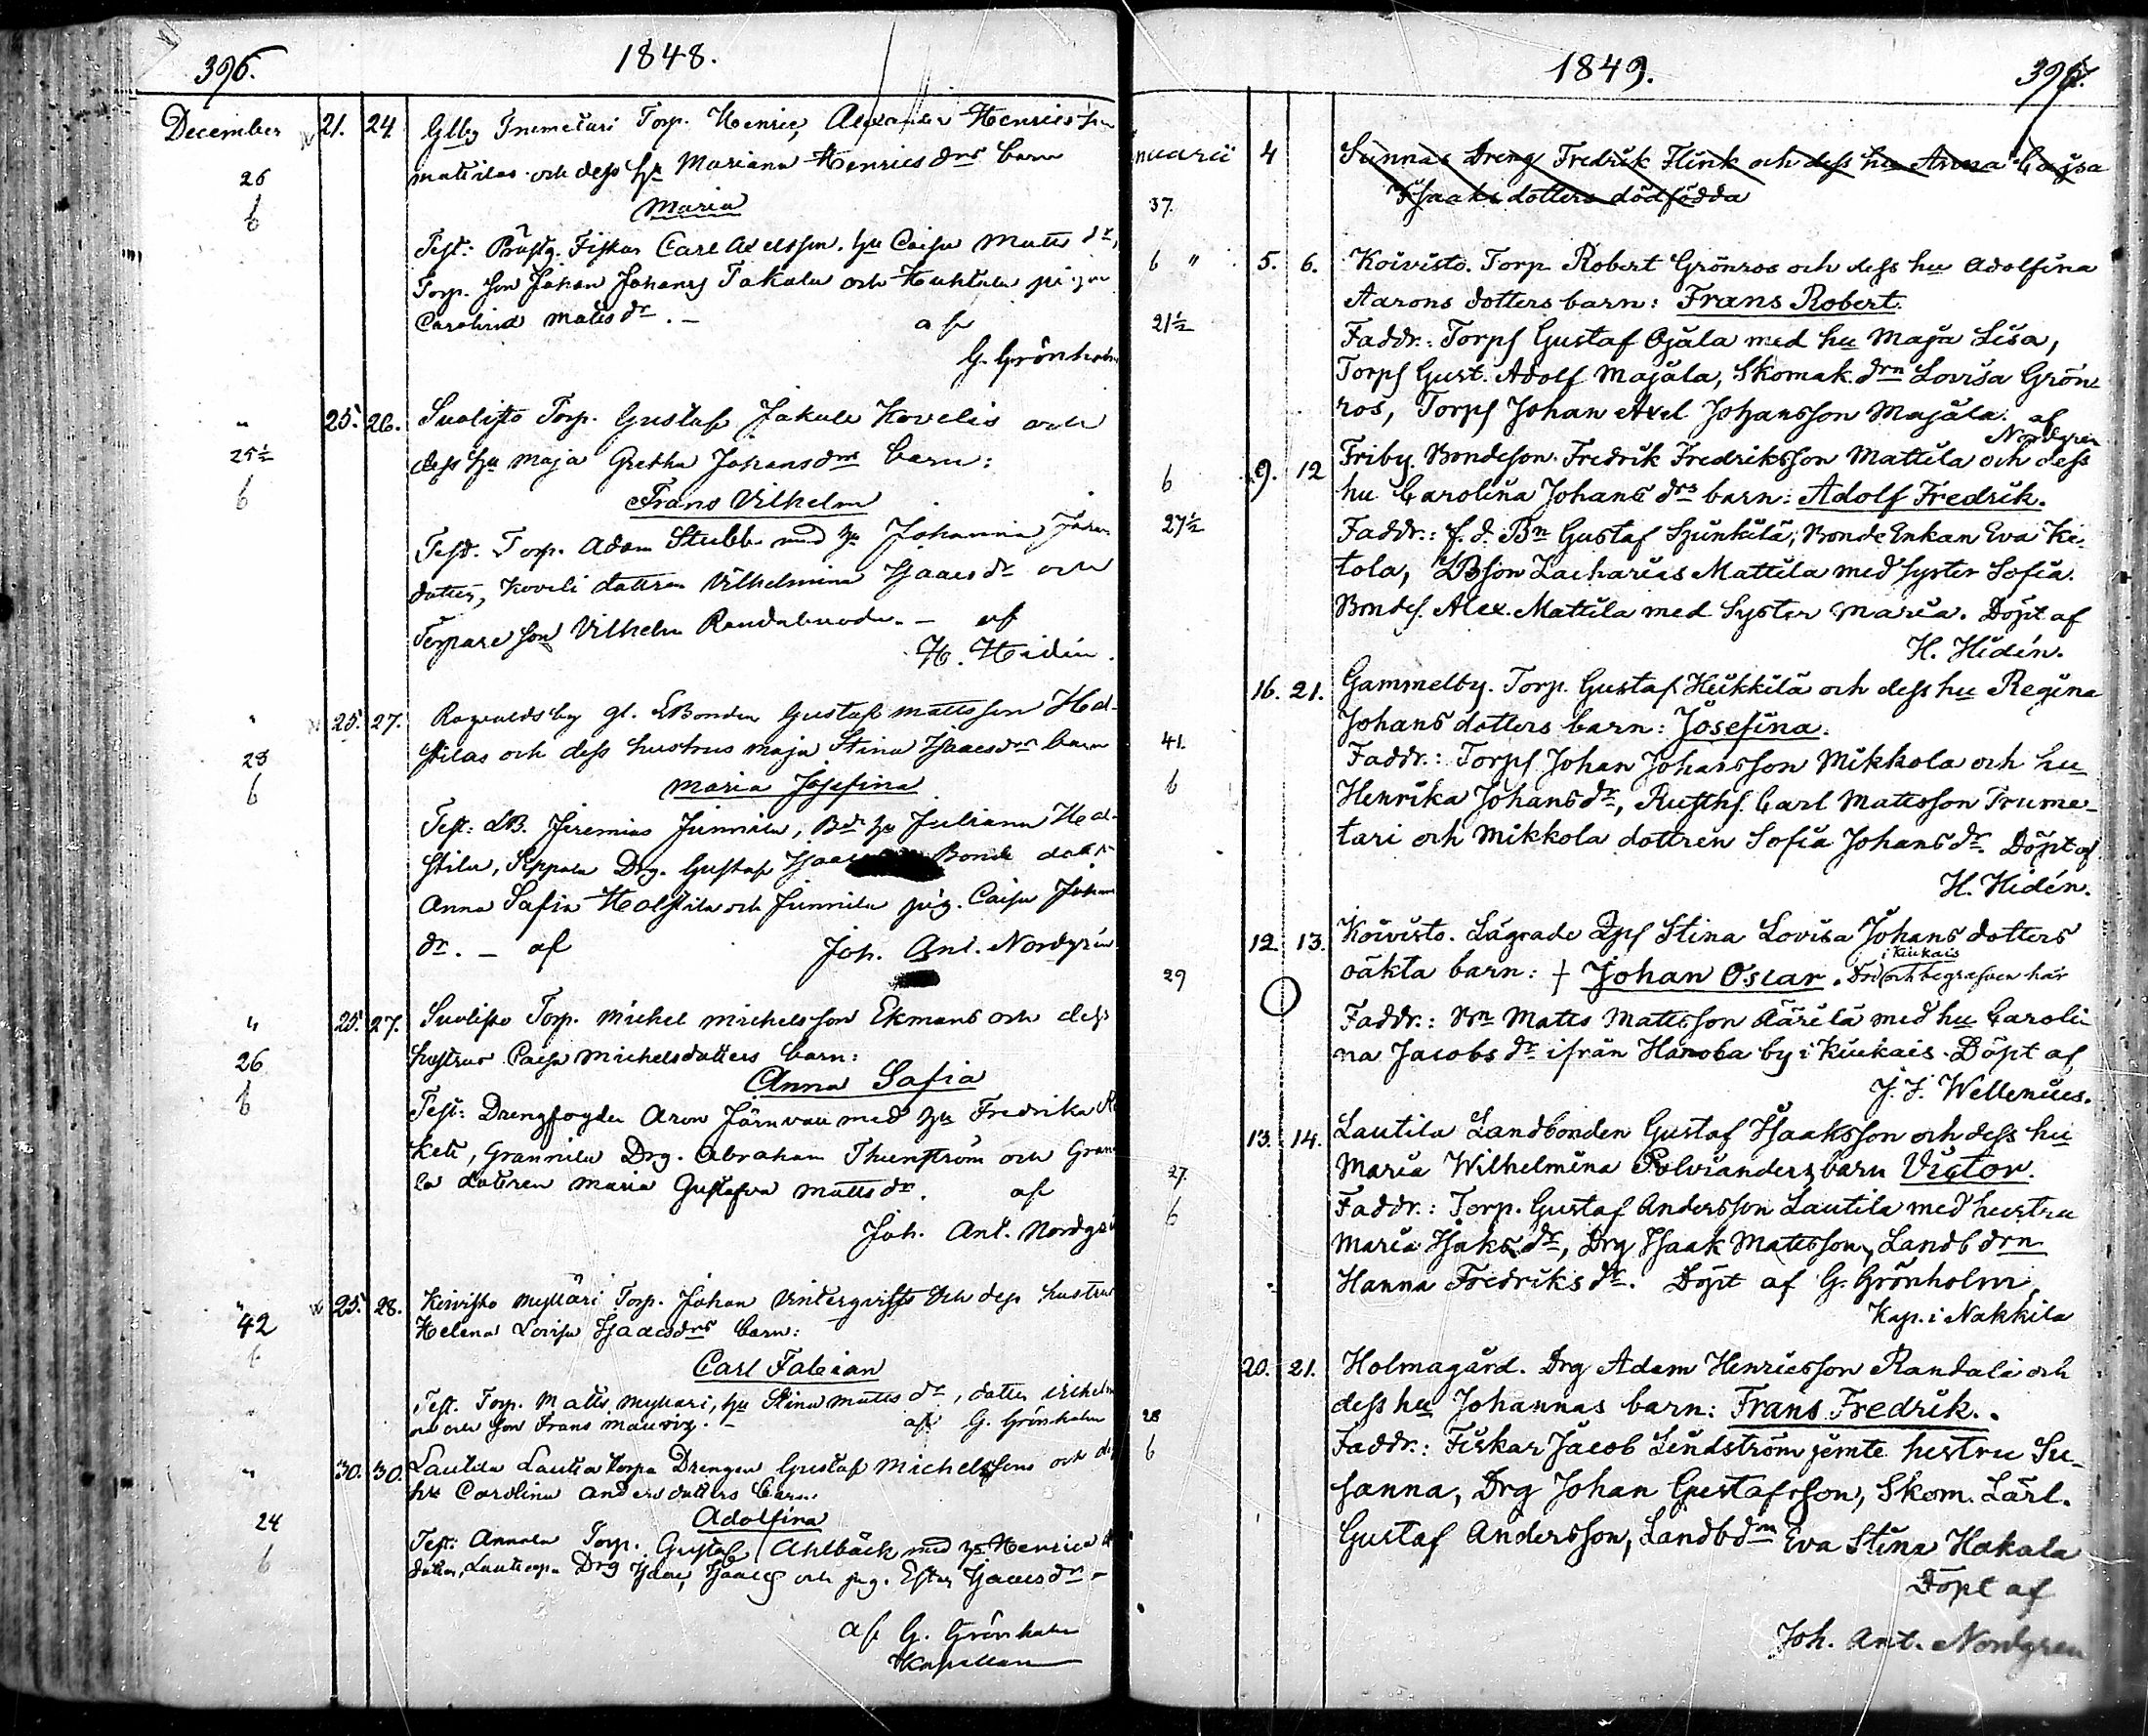 396.
1848.
December 21. 24 Glby Trumetari Torp. Henric Alexander Henrics son
Mattilas och dess hu Mariana Henrics drs barn
26
6
Maria
Test: Prästg. Fiskar Carl Adelsson, hu Caisa Matts dr,
Torp. Son Johan Johans Takala och Huhtala pigan
Carolina Matts dr. - af
G. Grönholm
" 25. 26. Suolisto Torp. Gustaf Jakule Kovelis och
25½
dess hu Maja Gretha Johans drs barn:
6
Frans Vilhelm
Test. Torp. Adam Stubb med hu Johanna
dotter, Koveli dottren Vilhelmina Isaacs dr och
Torpare son Vilhelm - af
H. Hidén.
" 25. 27. Ragvaldsby gl. LBonden Gustaf Mattsson Hed-
stilas och dess hustrus Maja Stina Isaacs drs barn
23
6
Maria Josefina
Test: LB. Jeremias Junnila, Bde hu Juliana Hed-
stila, Seppala Drg. Gustaf Bonde dottr
Anna Safia och Junnila pig. Caisa Johans
dr. - af Joh. Ant. Nordgren
" 25. 27. Suolisto Torp. Michel Michelsson Ekmans och dess
hustrus Caisa Michelsdotters barn:
26
6
Anna Safia
Test: Drengfogden Aron Järnvall med hu Fredrika
Keti, Grannila Drg. Abraham Thunström och Gran
la dottren Maria Gustafva Matts dr. af
Joh. Ant. Nordgren
" 25. 28. Koivisto Myllari Torp. Johan Vinterqvists och dess hustrus
42
Helena Lovisa Isaacsdrs barn:
6
Carl Fabian
Test. Torp. Matts Myllari, hu Stina Matts dr, dotter Vilhelmi
na och Son Frans Mauriz. - af G. Grönholm
" 30. 30. Lautila Lautiatorpa Drengen Gustaf Michelssons och dess
hu Carolina Anders dotters barn:
24
Adolfina
6
Test: Annala Torp. Gustaf Ahlbäck med hu Henrica
dotter, Drg Isaac Isaacs och pig. Ester Isaacs dr -
af G. Grönholm
Kapellan
1849.
397.
nuarii 4 Sunnas Dreng Fredrik Flink och dess hu Anna Cajsa
37. Isaaks dotters dödfödda
6 " 5. 6. Koivisto. Torp Robert Grönros och dess hu Adolfina
Aarons dotters barn: Frans Robert.
21½
Faddr.: Torps Gustaf Ojala med hu Maja Lisa,
Torps Gust. Adolf Majala, Skomak. drn Lovisa Grön-
ros, Torps Johan Axel Johansson Majala. af
Nordgren
6 9. 12 Friby. Bondeson Fredrik Fredriksson Mattila och dess
hu Carolina Johans drs barn: Adolf Fredrik.
27½
Faddr.: f. d. Bn Gustaf Sjunkilä, Bonde Enkan Eva Ke-
tola, LBson Zacharias Mattila med syster Sofia.
Bondes. Alex. Mattila med Syster Maria. Döpt af
H. Hidén.
16. 21. Gammelby. Torp. Gustaf Heikkilä och dess hu Regina
Johans dotters barn: Josefina.
41.
Faddr.: Torps Johan Johansson Mikkola och hu
6
Henrika Johans dr, Rusths. Carl Matsson Trume-
tari och Mikkola dottren Sofia Johans dr. Döpt af
H. Hidén.
12. 13. Koivisto. Lägrade Qps Stina Lovisa Johans dotters
i Kiukais
29
oäkta barn: † Johan Oscar. Död och begrafven här
Faddr.: Bn Matts Mattsson Äärilä med hu Caroli
na Jacobs dr ifrån Haroba by i Kiukais. Döpt af
J. F. Wellenius.
13. 14. Lautila Landbonden Gustaf Isaaksson och dess hu
27.
Maria Wilhelmina Polvianders barn Victor.
6
Faddr.: Torp. Gustaf Andersson Lautila med hustru
Maria Isaks dr, Drg Isaak Matsson, Landb drn
Hanna Fredriks dr. Döpt af G. Grönholm,
Kap. i Nakkila
20. 21. Holmagård. Drg Adam Henricsson Randali och
dess hu Johannas barn: Frans Fredrik.
28
6
Faddr.: Fiskar Jacob Lindström jemte hustru Su-
sanna, Drg Johan Gustafsson, Skom. Lärl.
Gustaf Andersson, Landb drn Eva Stina Hakala
Döpt af
Joh. Ant. Nordgren